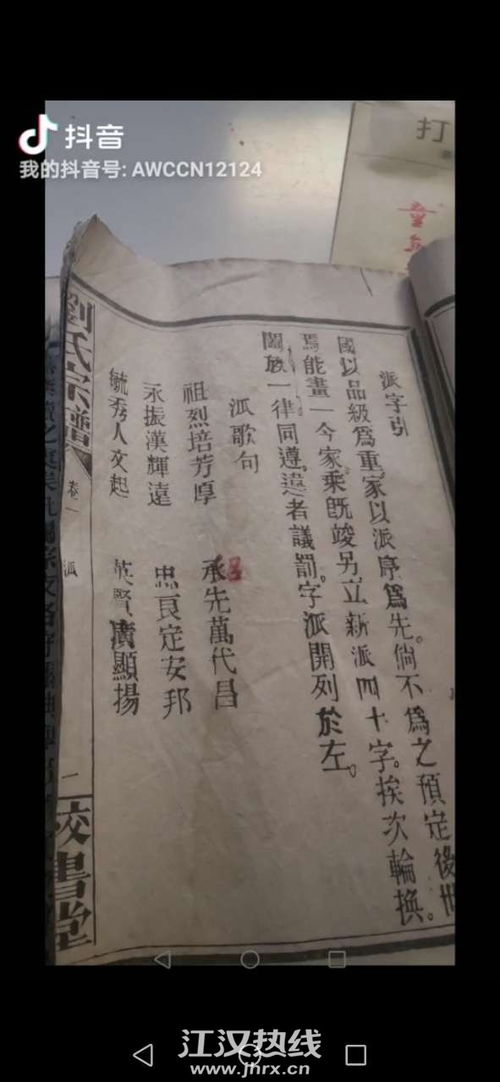 抖音
我的抖音号: AWCCN12124
打
派字引
國以品級爲重家以派序爲先。倘不爲之預定後世
焉能畫一今家乘既竣另立新派四十字。挨次輪換。
闔族一律同遵。違者議罰。字派開列於左。
派歌句
祖烈培芳厚 承先萬代昌
永振漢輝遠 忠良定安邦
毓秀人文起 英賢廣顯揚
劉氏宗譜 卷一 派 二 校書堂
江汉热线
www.jhrx.cn